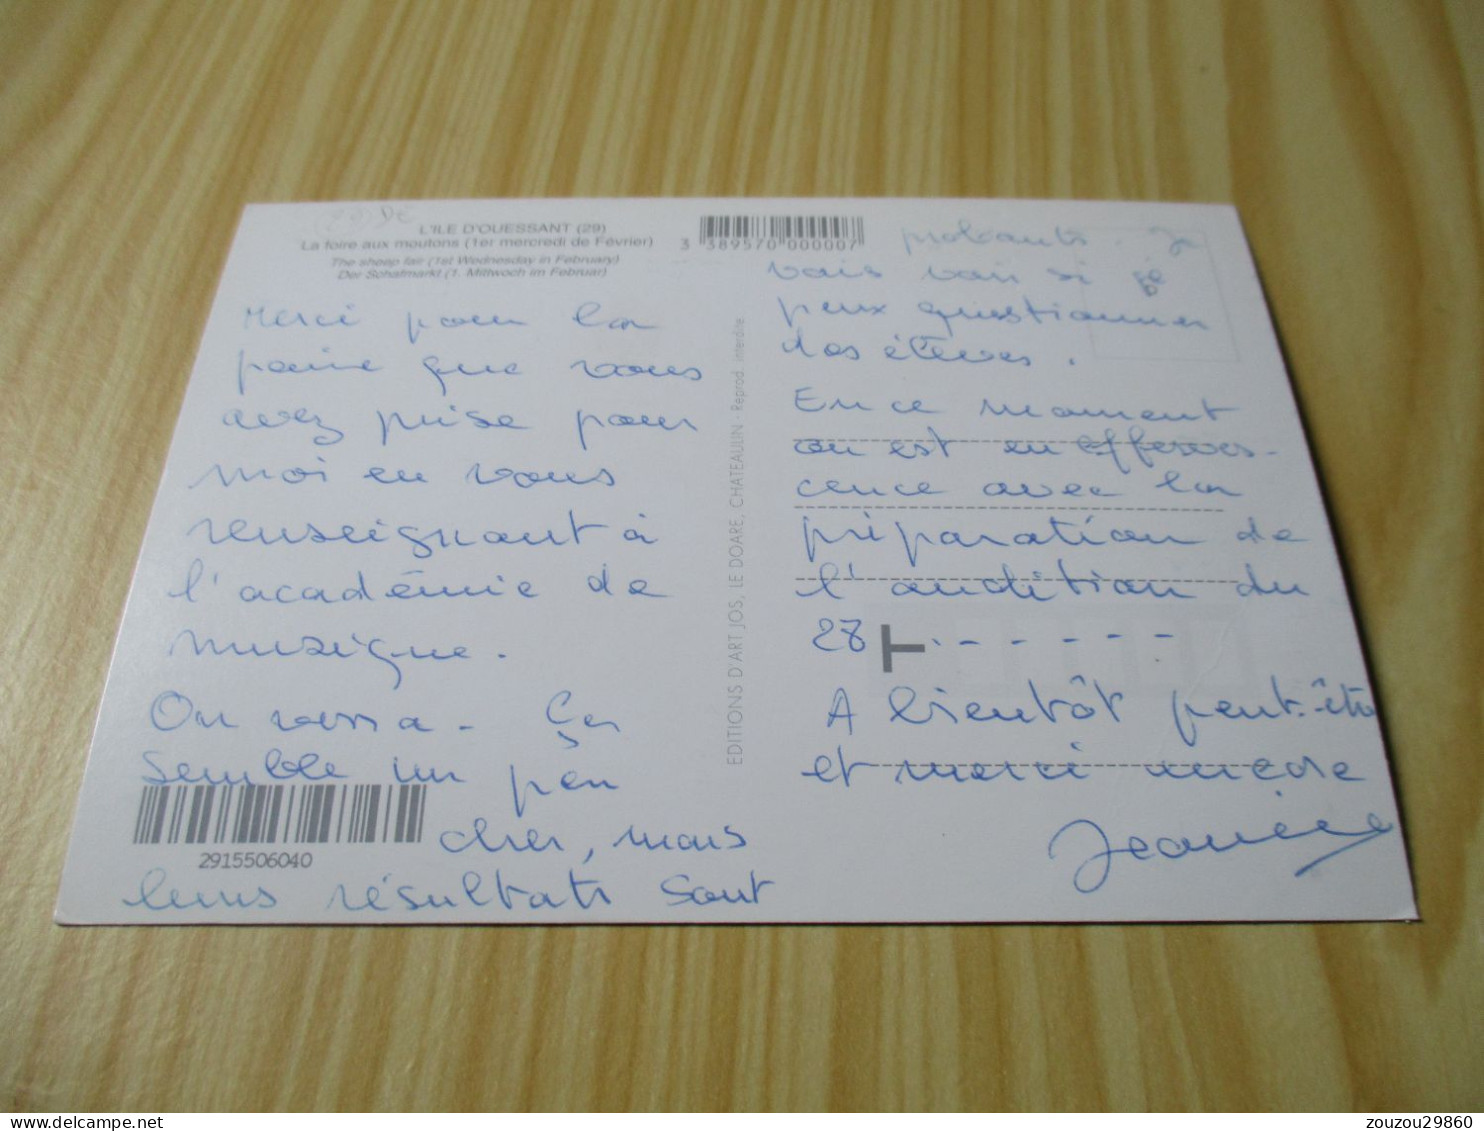 L'ILE D'OUESSANT (29)
La foire aux moutons (1er mercredi de Février)
The sheep fair (1st Wednesday in February)
Der Schafmarkt (1. Mittwoch im Februar)
3 389570 000007
Merci pour la
peine que vous
avez prise pour
moi en vous
renseignant à
l'académie de
musique.
On verra - Ça
semble un peu
cher, mais
leurs résultats sont
2915506040
EDITIONS D'ART JOS, LE DOARE, CHATEAULIN - Reprod. interdite
probants. Je
vais voir si je
peux questionner
des élèves.
En ce moment
on est en efferves-
cence avec la
préparation de
l'audition du
28
A bientôt peut-être
et merci encore
zouzou29860